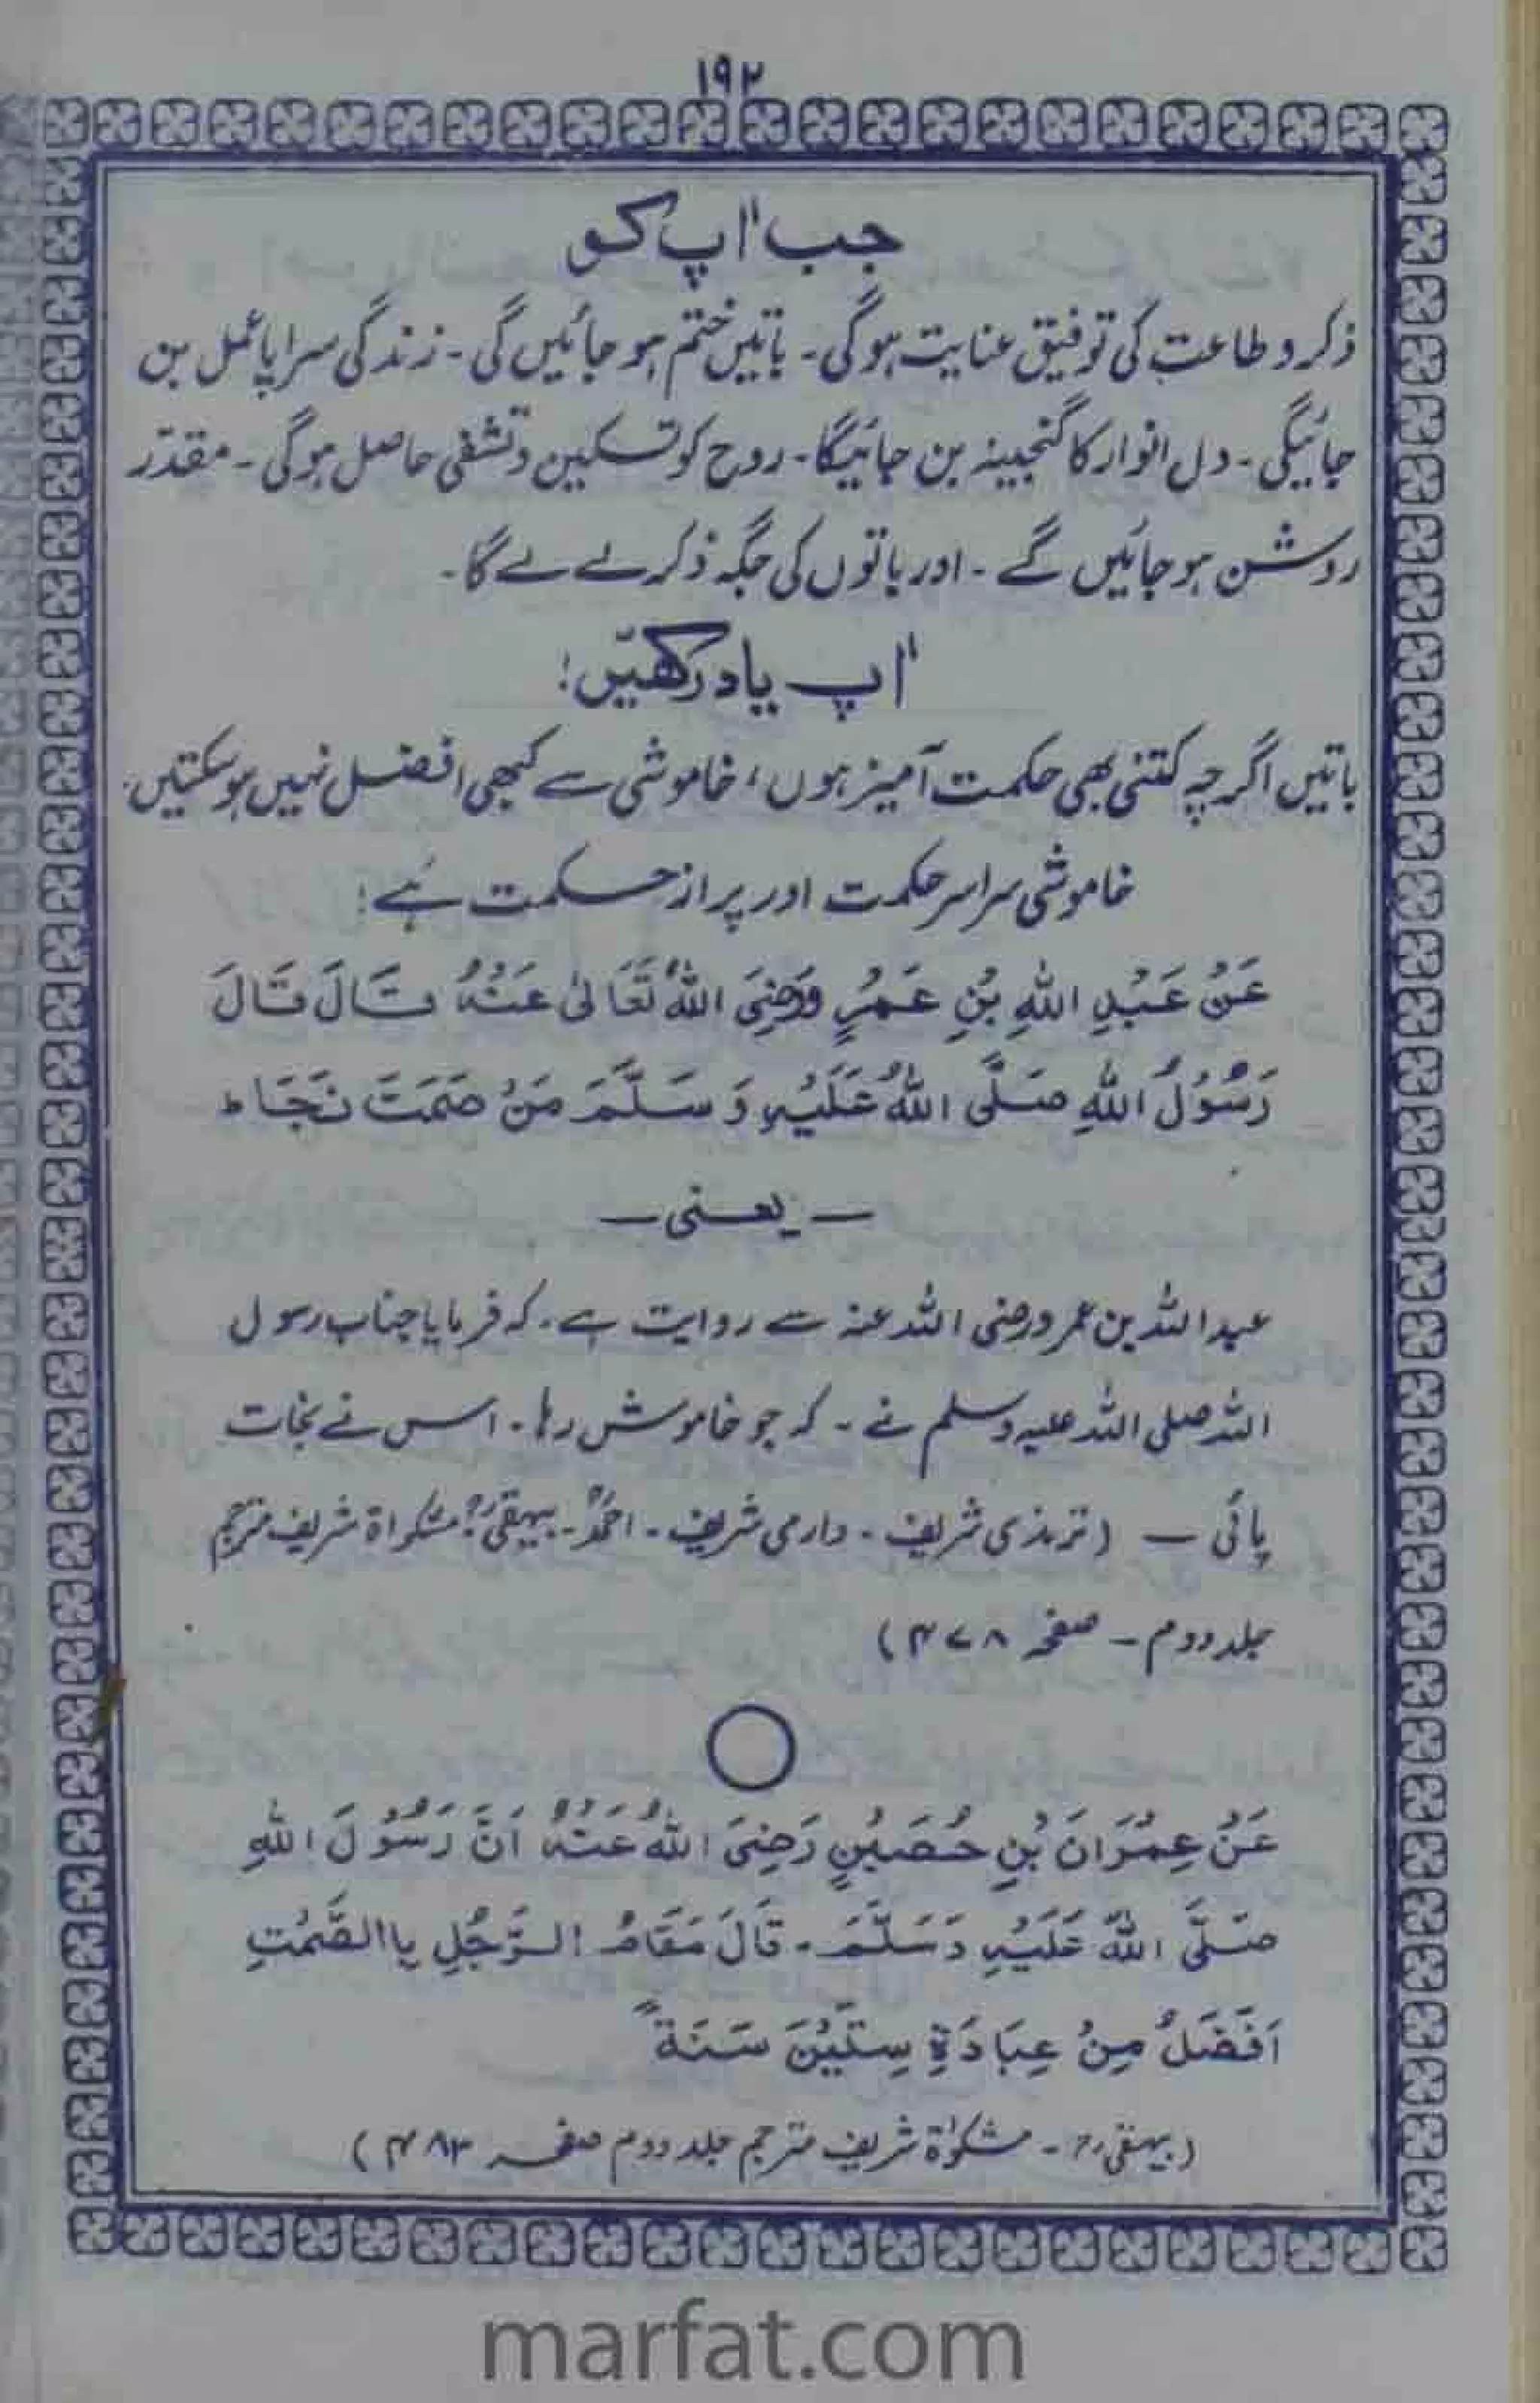 ۱۹۲
جب آپ کو
ذکر و طاعت کی توفیق عنایت ہوگی۔ باتیں ختم ہو جائیں گی۔ زندگی سراپا عمل بن
جائیگی۔ دل انوار کا گنجینہ بن جائیگا۔ روح کو تسکین و تشفی حاصل ہوگی۔ مقدّر
روشن ہو جائیں گے۔ اور باتوں کی جگہ ذکر لے لے گا۔
آپ یاد رکھیں!
باتیں اگرچہ کتنی بھی حکمت آمیز ہوں، خاموشی سے کبھی افضل نہیں ہو سکتیں،
خاموشی سراسر حکمت اور پراز حکمت ہے!
عَنْ عَبْدِ اللّٰهِ بْنِ عَمْرٍو رَضِيَ اللّٰهُ تَعَالٰى عَنْهُ قَالَ قَالَ
رَسُوْلُ اللّٰهِ صَلَّى اللّٰهُ عَلَيْهِ وَ سَلَّمَ مَنْ صَمَتَ نَجَا ط
— یعنی —
عبد اللہ بن عمرو رضی اللہ عنہ سے روایت ہے۔ کہ فرمایا جناب رسول
اللہ صلی اللہ علیہ وسلم نے۔ کہ جو خاموش رہا۔ اس نے نجات
پائی — (ترمذی شریف۔ دارمی شریف۔ احمدؒ۔ بیہقیؒ؛ مشکواۃ شریف مترجم
جلد دوم۔ صفحہ ۴۷۸)
عَنْ عِمْرَانَ بْنِ حُصَيْنٍ رَضِيَ اللّٰهُ عَنْهُ اَنَّ رَسُوْلَ اللّٰهِ
صَلَّى اللّٰهُ عَلَيْهِ وَسَلَّمَ۔ قَالَ مَقَامُ الرَّجُلِ بِاالصَّمْتِ
اَفْضَلُ مِنْ عِبَادَةِ سِتِّيْنَ سَنَةً
(بیہقیؒ۔ مشکوٰۃ شریف مترجم جلد دوم صفحہ ۴۸۳)
marfat.com